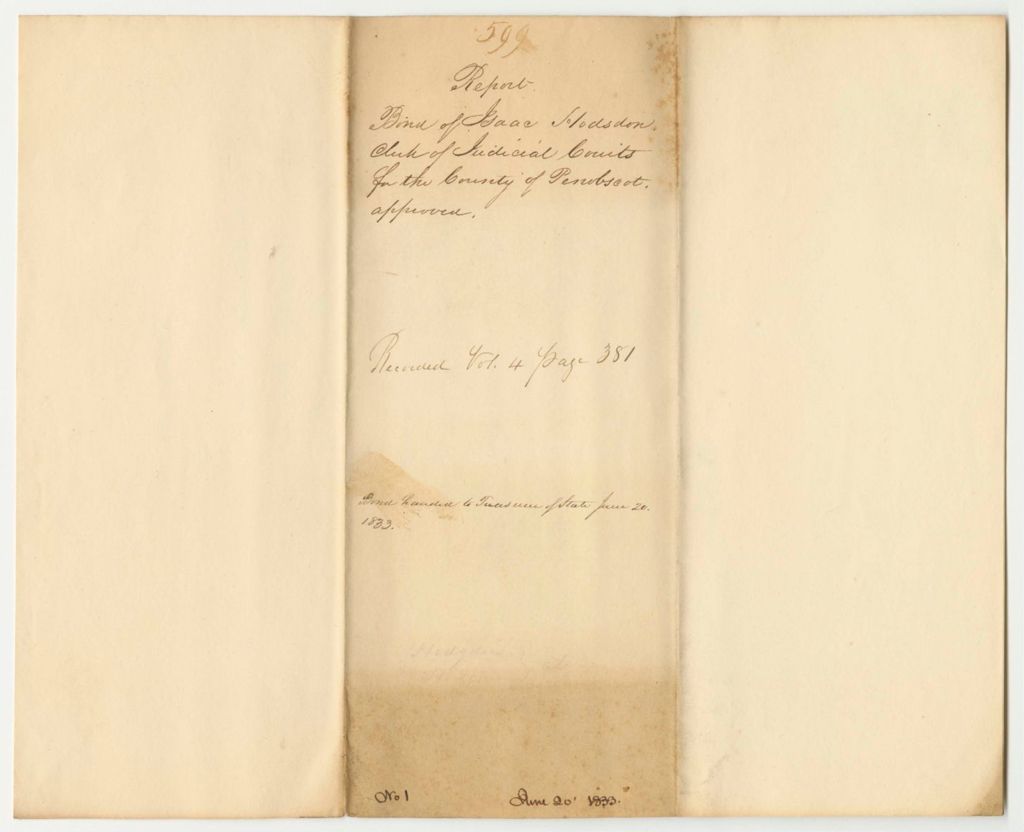 599
Report.
Bond of Isaac Hodsdon.
Clerk of Judicial Courts
for the County of Penobscot.
approved.
Recorded Vol. 4 Page 381
Bond handed to Treasurer of State June 20.
1833.
Hodgdon
No 1 June 20 1833.